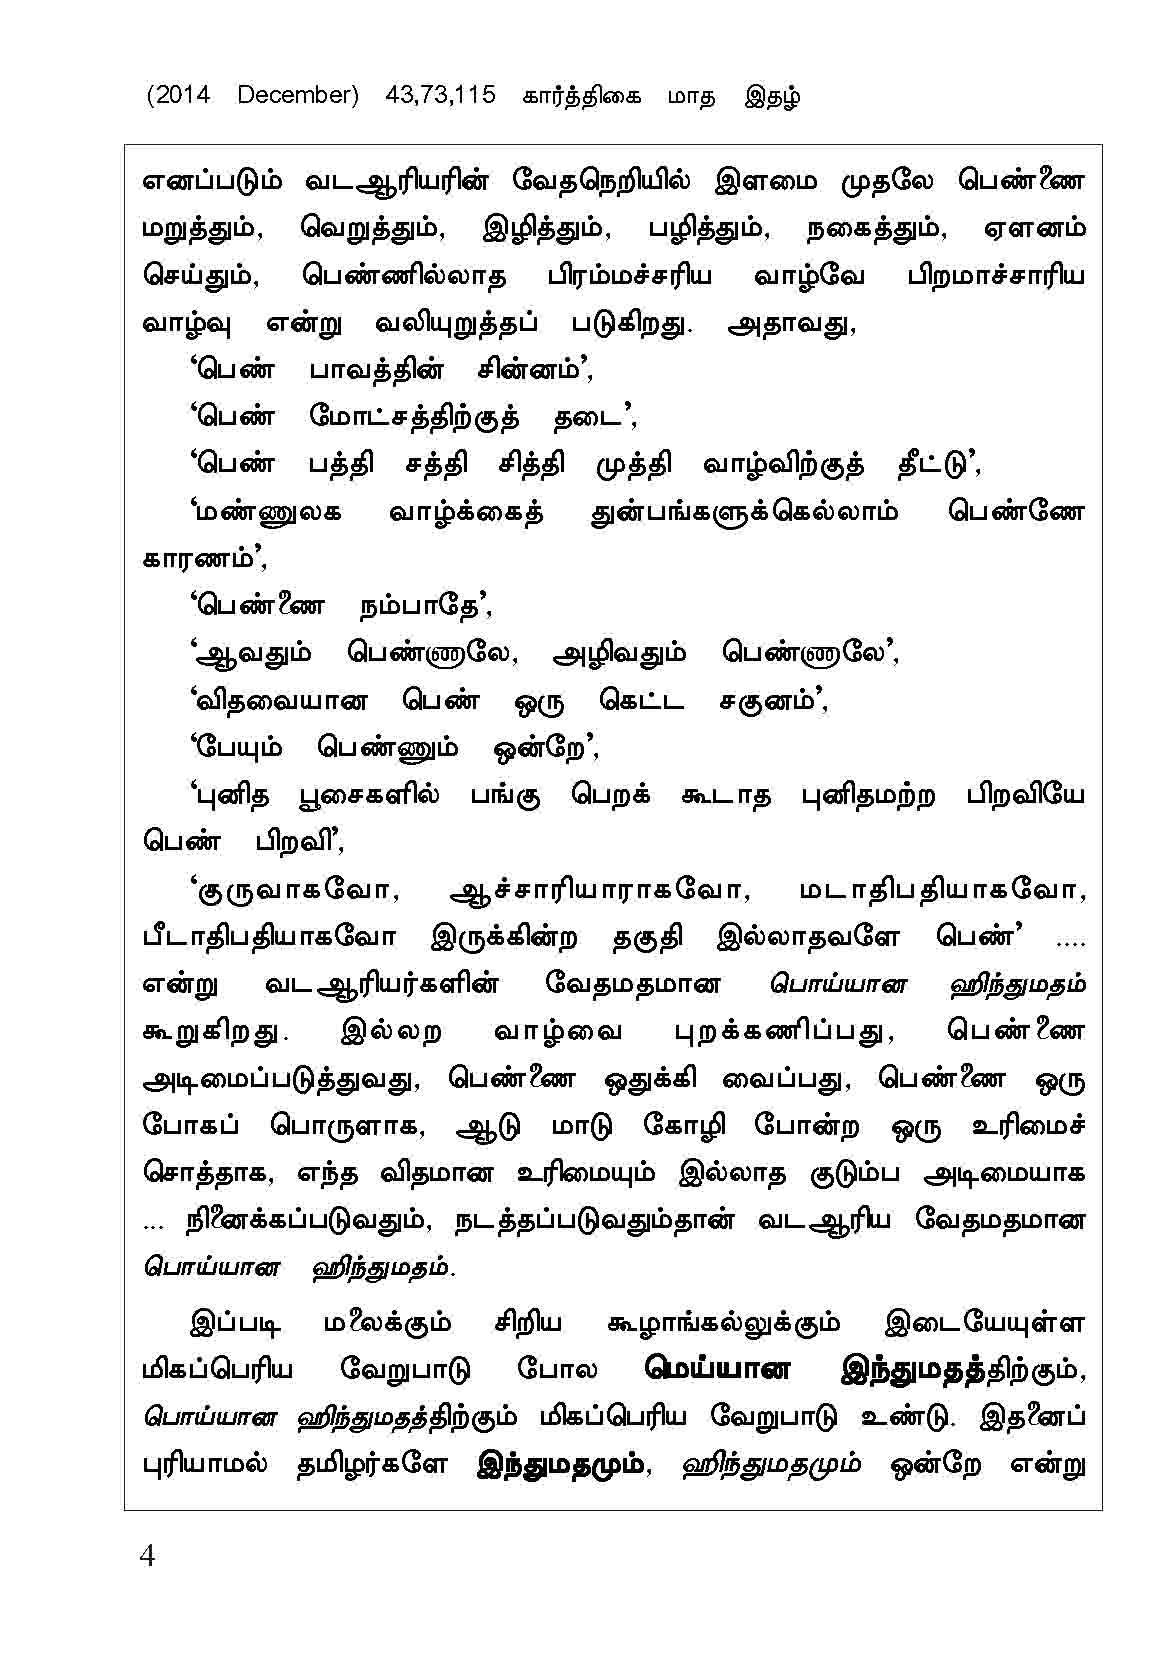 (2014 December) 43,73,115 கார்த்திகை மாத இதழ்
எனப்படும் வடஆரியரின் வேதநெறியில் இளமை முதலே பெண்ணை
மறுத்தும், வெறுத்தும், இழித்தும், பழித்தும், நகைத்தும், ஏளனம்
செய்தும், பெண்ணில்லாத பிரம்மச்சரிய வாழ்வே பிறமாச்சாரிய
வாழ்வு என்று வலியுறுத்தப் படுகிறது. அதாவது,
‘பெண் பாவத்தின் சின்னம்’,
‘பெண் மோட்சத்திற்குத் தடை’,
‘பெண் பத்தி சத்தி சித்தி முத்தி வாழ்விற்குத் தீட்டு’,
‘மண்ணுலக வாழ்க்கைத் துன்பங்களுக்கெல்லாம் பெண்ணே
காரணம்’,
‘பெண்ணை நம்பாதே’,
‘ஆவதும் பெண்ணாலே, அழிவதும் பெண்ணாலே’,
‘விதவையான பெண் ஒரு கெட்ட சகுனம்’,
‘பேயும் பெண்ணும் ஒன்றே’,
‘புனித பூசைகளில் பங்கு பெறக் கூடாத புனிதமற்ற பிறவியே
பெண் பிறவி’,
‘குருவாகவோ, ஆச்சாரியாராகவோ, மடாதிபதியாகவோ,
பீடாதிபதியாகவோ இருக்கின்ற தகுதி இல்லாதவளே பெண்’ ....
என்று வடஆரியர்களின் வேதமதமான பொய்யான ஹிந்துமதம்
கூறுகிறது. இல்லற வாழ்வை புறக்கணிப்பது, பெண்ணை
அடிமைப்படுத்துவது, பெண்ணை ஒதுக்கி வைப்பது, பெண்ணை ஒரு
போகப் பொருளாக, ஆடு மாடு கோழி போன்ற ஒரு உரிமைச்
சொத்தாக, எந்த விதமான உரிமையும் இல்லாத குடும்ப அடிமையாக
... நினைக்கப்படுவதும், நடத்தப்படுவதும்தான் வடஆரிய வேதமதமான
பொய்யான ஹிந்துமதம்.
இப்படி மலைக்கும் சிறிய கூழாங்கல்லுக்கும் இடையேயுள்ள
மிகப்பெரிய வேறுபாடு போல மெய்யான இந்துமதத்திற்கும்,
பொய்யான ஹிந்துமதத்திற்கும் மிகப்பெரிய வேறுபாடு உண்டு. இதனைப்
புரியாமல் தமிழர்களே இந்துமதமும், ஹிந்துமதமும் ஒன்றே என்று
4